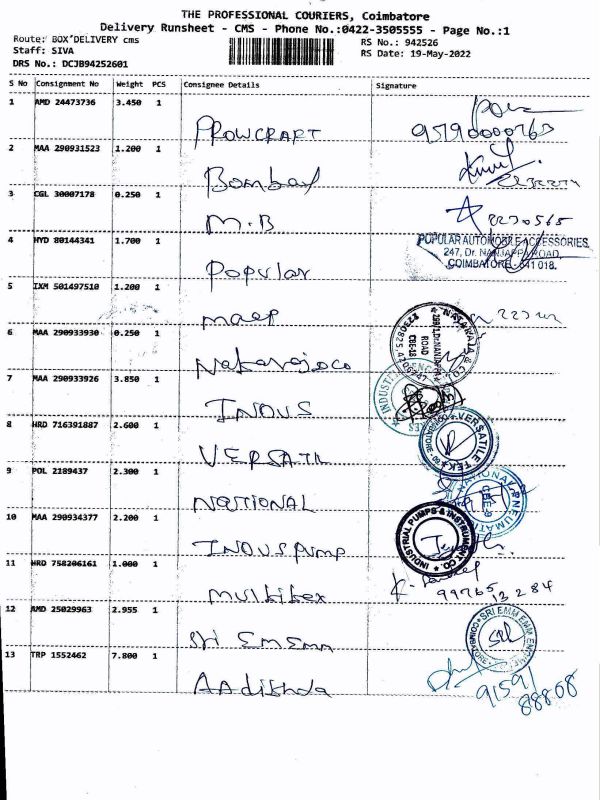 THE PROFESSIONAL COURIERS, Coimbatore
Delivery Runsheet - CMS - Phone No.:0422-3505555 - Page No.:1
Route: BOX DELIVERY cms
RS No.: 942526
Staff: SIVA
RS Date: 19-May-2022
DRS No.: DCJB94252601
S No Consignment No Weight PCS Consignee Details Signature
1 AMD 24473736 3.450 1
PROWCRAFT
2 MAA 290931523 1.200 1
Bombay
3 CGL 30007178 0.250 1
M.B
2230565
4 HYD 80144341 1.700 1
Popular
POPULAR AUTOMOBILE ACCESSORIES
247, Dr. NANJAPPA ROAD,
COIMBATORE - 641 018.
5 IXM 501497510 1.200 1
6 MAA 290933930 0.250 1
NATARAJ & CO.
ROAD
CBE-18
7 MAA 290933926 3.850 1
INDUS
8 HRD 716391887 2.600 1
VERSATIL
VERSATILE TEK
9 POL 2189437 2.300 1
NATIONAL
NATIONAL PNEUMATI
10 MAA 290934377 2.200 1
INDUS pump
INDUSTRIAL PUMPS & INSTRUMENT CO.
11 HRD 758206161 1.000 1
multitex
99765
13 284
12 AMD 25029963 2.955 1
Sri EMEmm
SRI EMM EMM
13 TRP 1552462 7.800 1
AAdishda
91591
88808